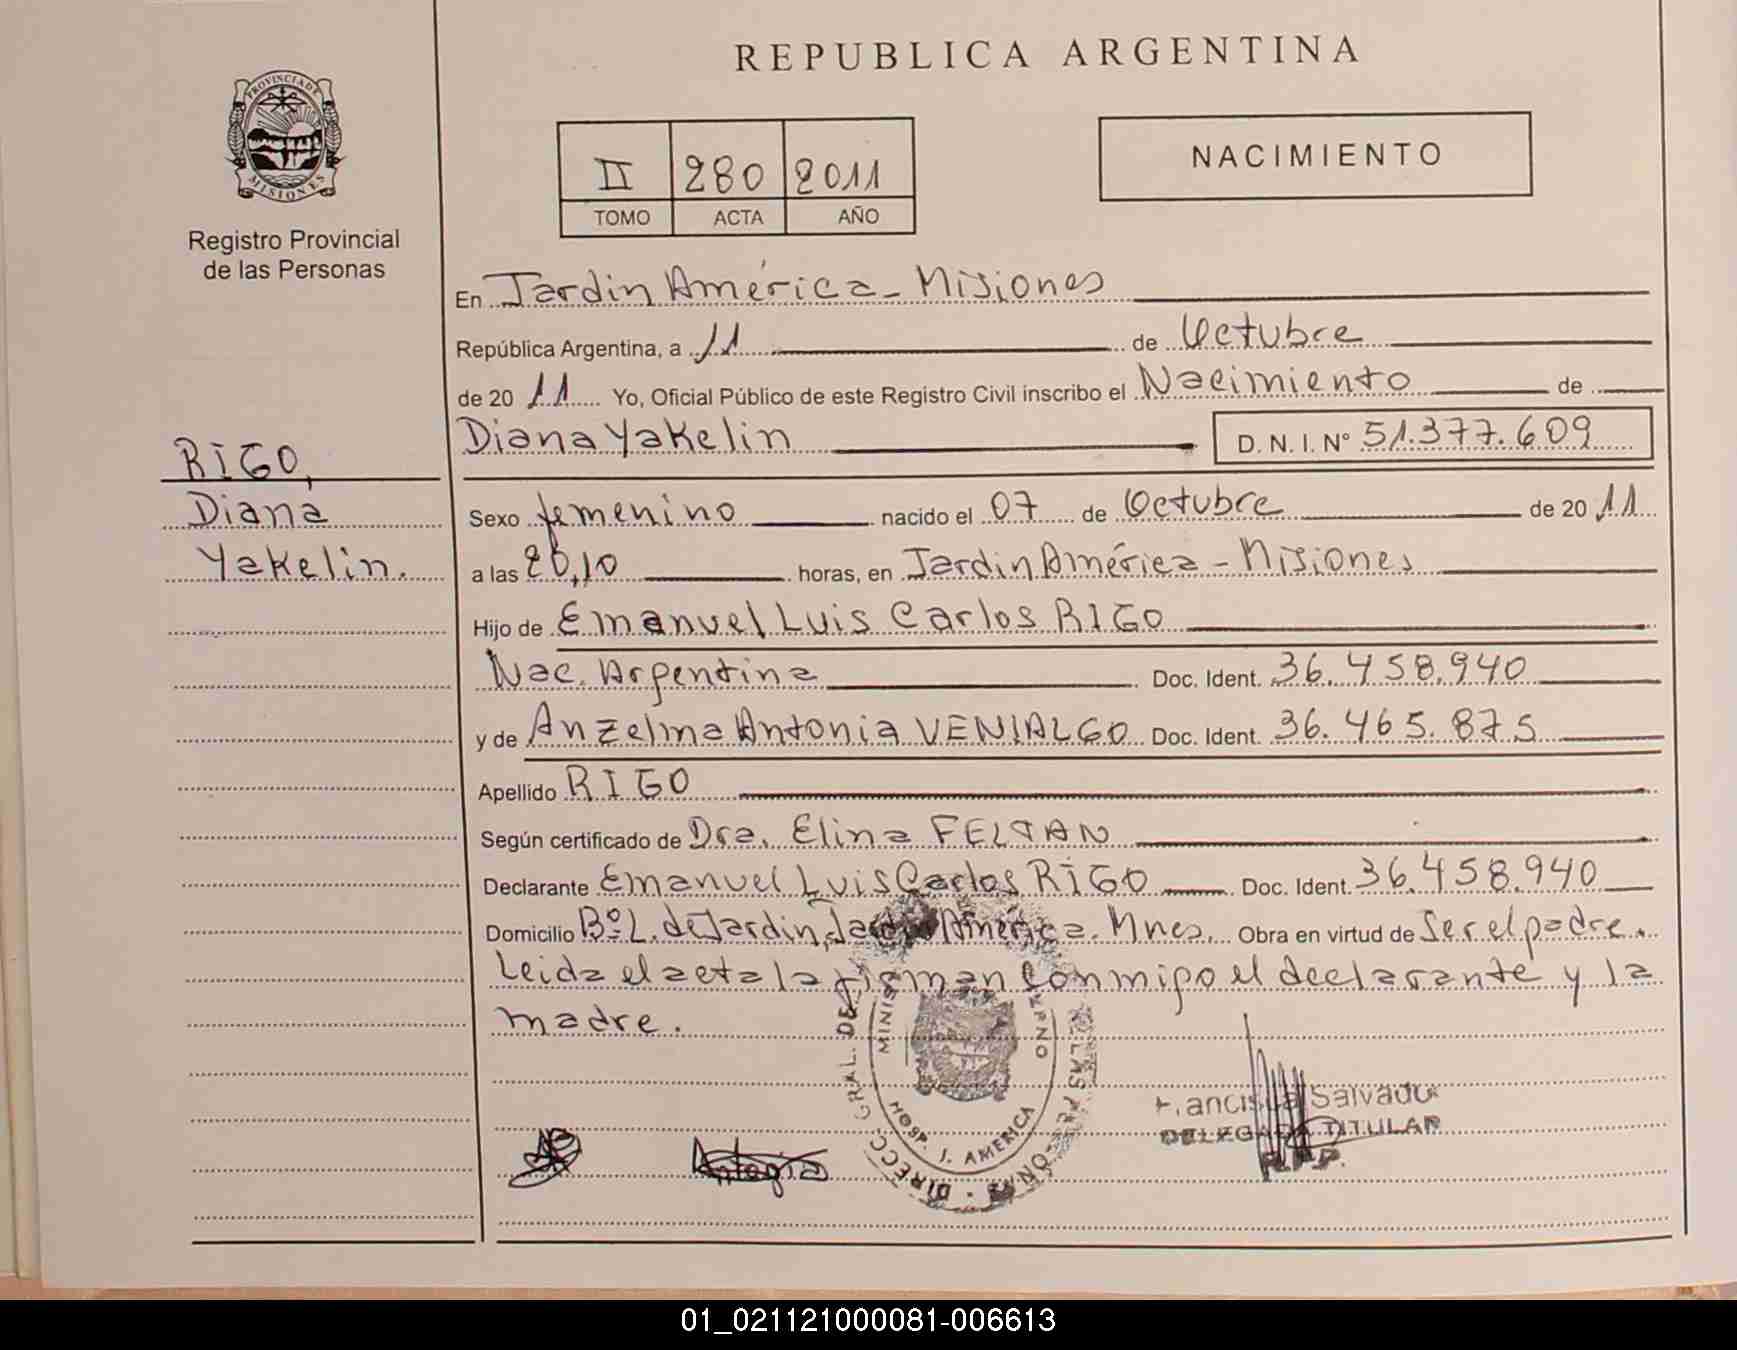 REPUBLICA ARGENTINA
PROVINCIA DE MISIONES
Registro Provincial
de las Personas
II 280 2011
TOMO ACTA AÑO
NACIMIENTO
En Jardin América - Misiones
República Argentina, a 11 de Octubre
de 20 11 Yo, Oficial Público de este Registro Civil inscribo el Nacimiento de
Diana Yakelin D. N. I. N° 51.377.609
RIGO,
Diana
Yakelin.
Sexo femenino nacido el 07 de Octubre de 20 11
a las 20,10 horas, en Jardin América - Misiones
Hijo de Emanuel Luis Carlos RIGO
Nac. Argentina Doc. Ident. 36.458.940
y de Anzelma Antonia VENIALGO Doc. Ident. 36.465.875
Apellido RIGO
Según certificado de Dra. Elina FELTAN
Declarante Emanuel Luis Carlos RIGO Doc. Ident. 36.458.940
Domicilio Bº L. de Jardin, Jardin América. Mnes. Obra en virtud de Ser el padre.
Leida el acta la firman conmigo el declarante y la
madre.
DIRECC. GRAL. DE LAS PE
MINIS
HOSP. J. AMERICA
Salvado
DELEGADA TITULAR
R.P.P.
01_021121000081-006613